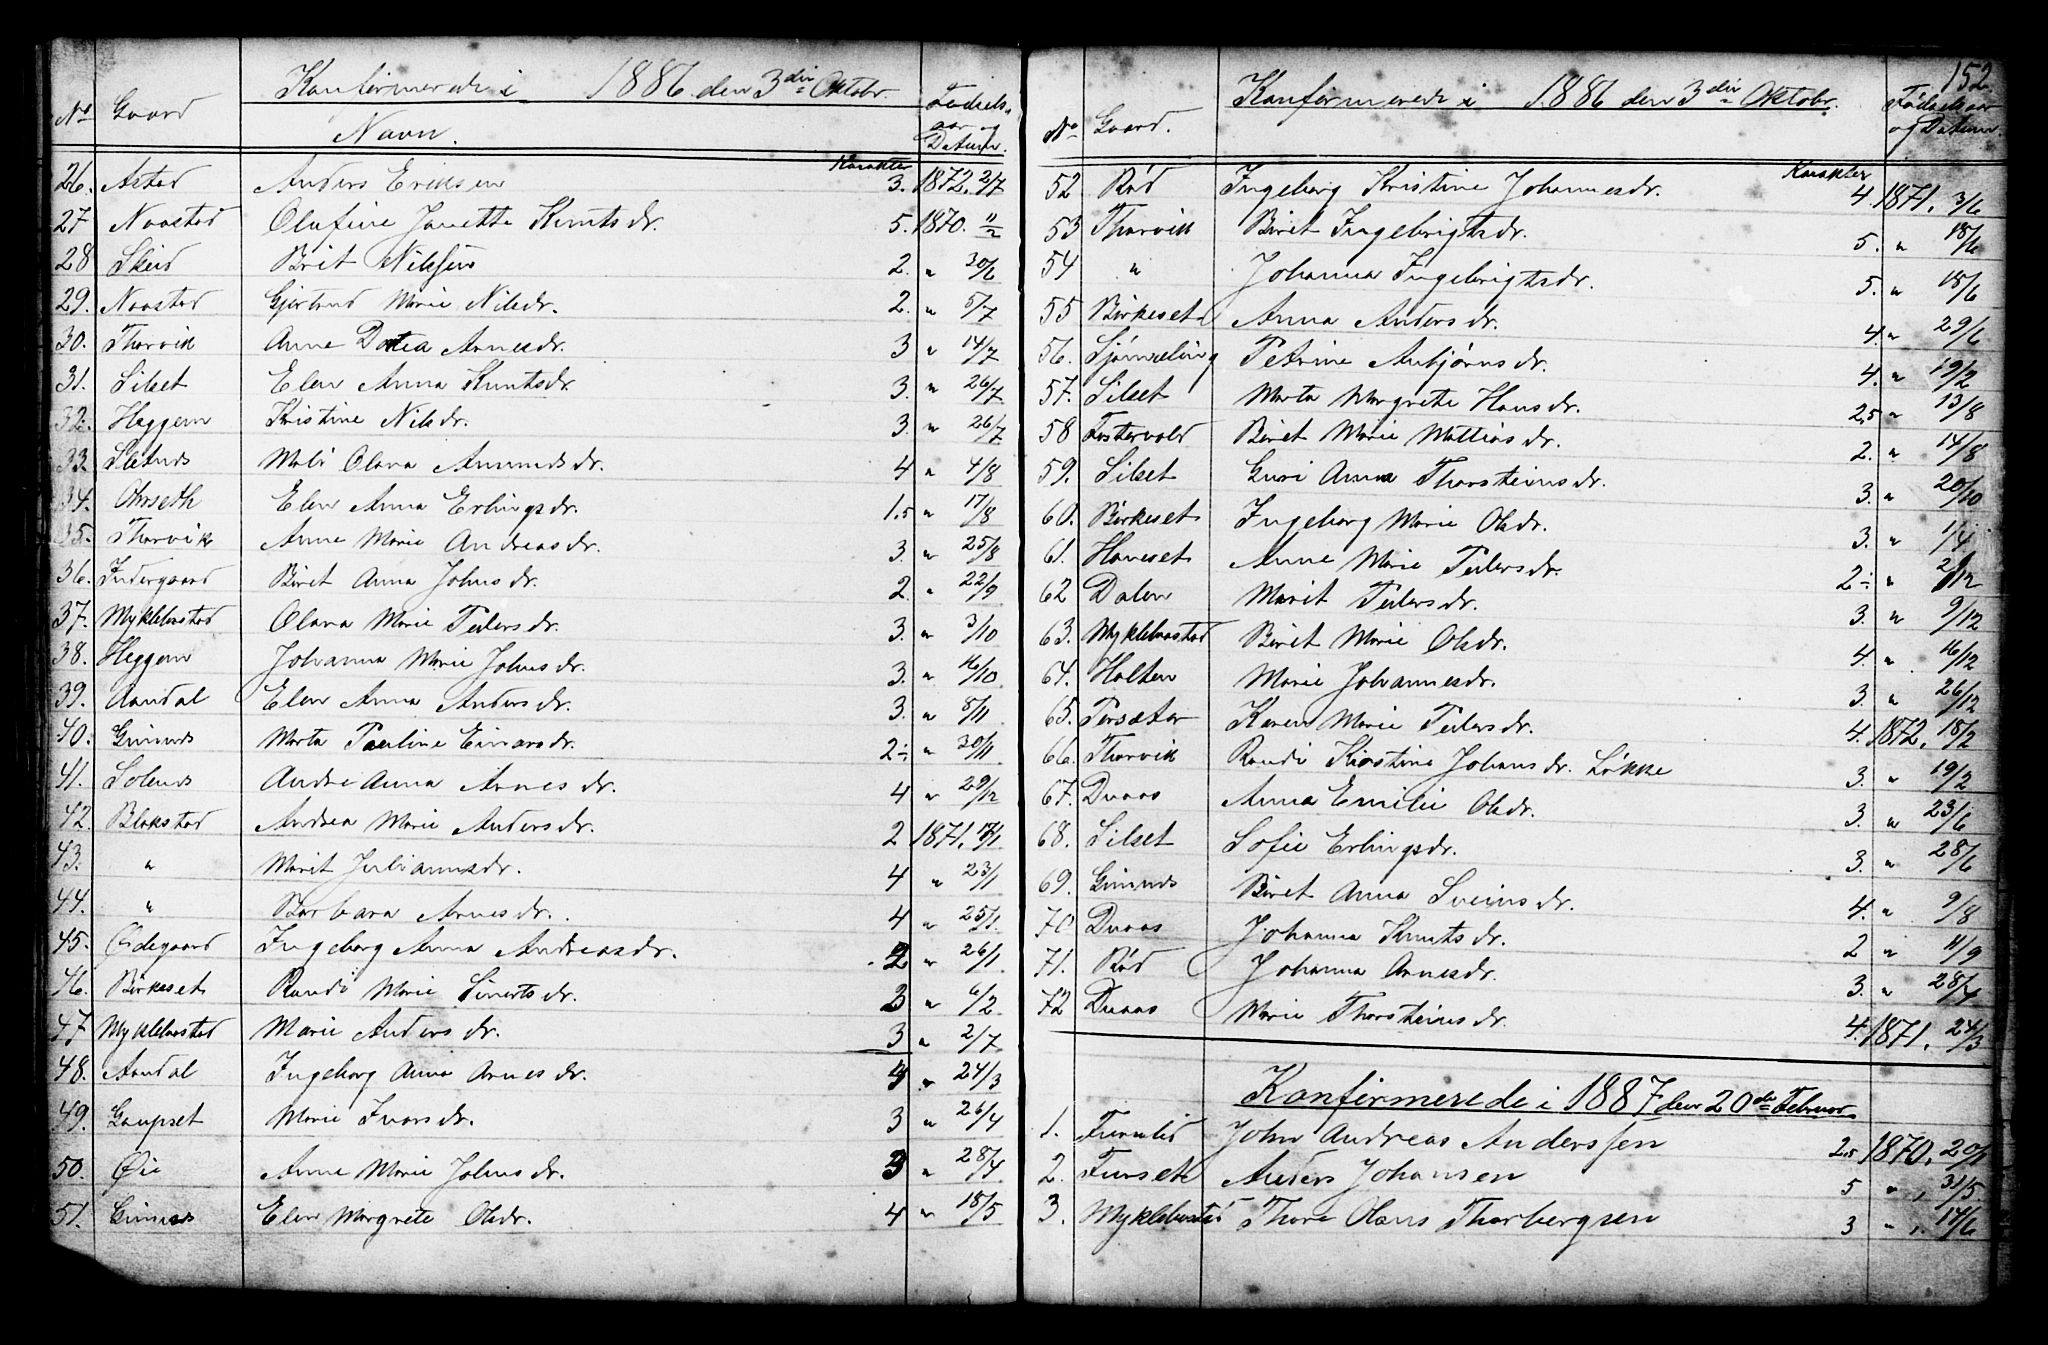 Konfirmerede i 1886 den 3die Oktobr.
No Gaard Navn. Fødsels-
aar og
Datum.
Karakter
26. Astad Anders Eriksen 3. 1872. 2/7
27 Naastad Olufine Janette Knutsdr. 5. 1870. "/2
28 Skeid Brit Nilssen 2. " 30/6
29. Naastad Gjertrud Marie Nilsdr. 2. " 5/7
30. Thorvik Anne Dortea Arnesdr. 3 " 14/7
31. Silset Elen Anna Knutsdr. 3. " 26/7
32. Heggem Kristine Nilsdr. 3. " 26/7
33. Mali Olava Amundsdr. 4 " 4/8
34. Ohrseth Elen Anna Erlingsdr. 1.5 " 17/8
35. Thorvik Anne Marie Andreasdr. 3. " 25/8
36. Indergaard Biret Anna Johnsdr. 2. " 22/9
37. Myklebostad Olava Marie Pedersdr. 3. " 3/10
38. Heggem Johanna Marie Johnsdr. 3. " 16/10
39. Aandal Elen Anna Andersdr. 3. " 8/11
40. Gimnes Marta Pauline Einarsdr. 2÷ " 30/11
41. Solnes Andre Anna Arnesdr. 4 " 29/12
42. Blakstad Andrea Marie Andersdr. 2 1871. 17/1
43. " Marit Juliannesdr. 4 " 23/1
44. " Barbara Arnesdr. 4 " 25/1
45. Ødegaard Ingeborg Anna Andreasdr. 2 " 26/1
46. Birkeset Randi Marie Sivertsdr. 3 " 6/2
47 Myklebostad Marie Andersdr. 3 " 2/7
48. Aandal Ingeborg Anna Arnesdr. 4 " 24/3
49. Gaupset Marie Ivarsdr. 3 " 26/4
50. Øie Anne Marie Johnsdr. 3 " 28/4
51. Gimnes Elen Margrete Olsdr. 4 " 18/5
152.
Konfirmerede i 1886 den 3die Oktobr.
No Gaard. Fødselsaar
og Datum.
Karakter
52 Rød Ingeborg Kristine Johannesdr. 4 1871. 3/6
53 Thorvik Biret Ingebrigtsdr. 5. " 18/6
54 " Johanna Ingebrigtsdr. 5. " 18/6
55 Birkeset Anna Andersdr. 4. " 29/6
56. Sjømæling Petrine Anbjørnsdr. 4. " 19/2
57. Silset Marta Margrete Hansdr. 2.5 " 13/8
58 Fostervold Biret Marie Mattiasdr. 2. " 14/8
59. Silset Guri Anna Thorsteinsdr. 3. " 20/10
60. Birkeset Ingeborg Marie Olsdr. 3. " 1/4
61. Haneset Anne Marie Pedersdr. 2÷ " 2/12
62 Dalen Marit Pedersdr. 3. " 9/12
63. Myklebostad Biret Marie Olsdr. 4. " 16/12
64. Holten Marie Johannesdr. 3. " 26/12
65. Persæter Karen Marie Pedersdr. 4. 1872. 18/2
66. Thorvik Randi Kirstine Johansdr. Løkke 3. " 19/2
67. Duaas Anna Emilie Olsdr. 3. " 23/6
68. Silset Sofie Erlingsdr. 3. " 28/6
69. Gimnes Biret Anna Sveinsdr. 4. " 9/8
70 Duaas Johanna Knutsdr. 2 " 11/9
71. Rød Johanna Arnesdr. 3. " 28/4
72 Duaas Marie Thorsteinsdr. 4. 1871. 24/3
Konfirmerede i 1887 den 20de Februar
1. Furulid John Andreas Anderssen 2.5 1870, 20/1
2. Furset Anders Johansen 5 ", 31/5
3. Myklebostad Thore Olaus Thorbergsen 3 ", 14/6